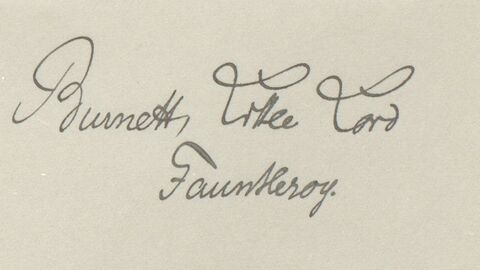 Burnett, Little Lord
Fauntleroy.